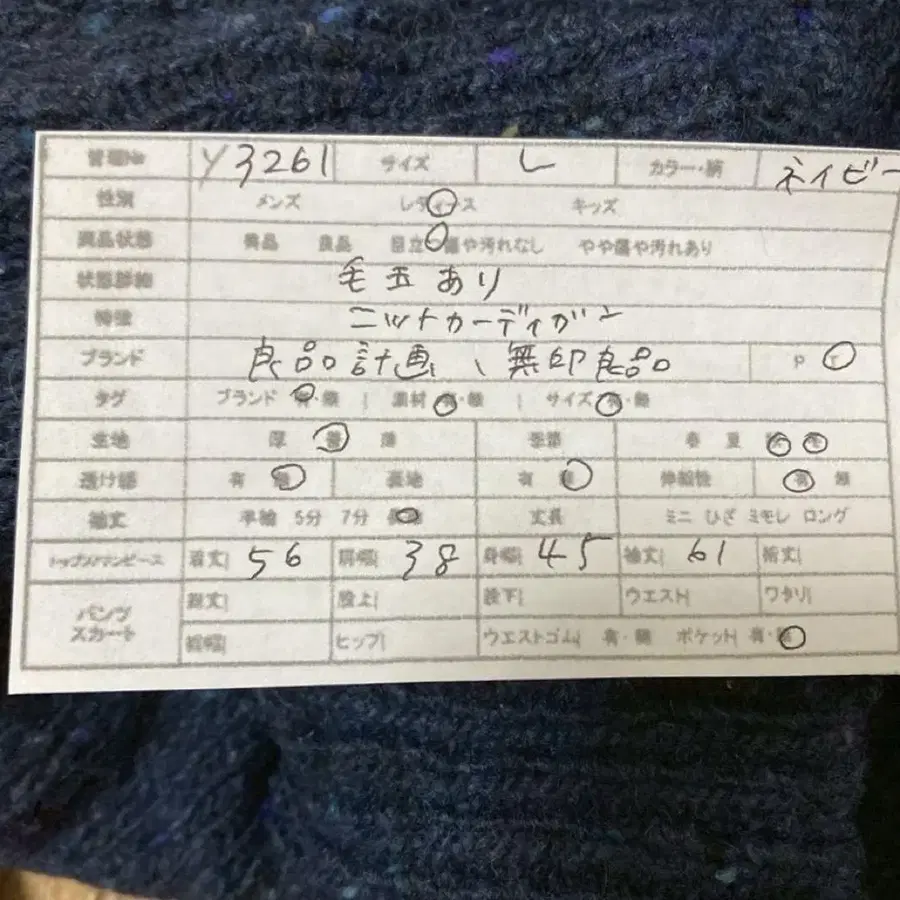 管理No Y3261 サイズ L カラー・柄 ネイビー
性別 メンズ レディース キッズ
商品状態 美品 良品 目立つ傷や汚れなし やや傷や汚れあり
状態詳細 毛玉あり
特徴 ニットカーディガン
ブランド 良品計画、無印良品 P
タグ ブランド 有・無 | 素材 有・無 | サイズ 有・無
生地 厚 普 薄 季節 春 夏 秋 冬
透け感 有 無 裏地 有 無 伸縮性 有 無
袖丈 半袖 5分 7分 長袖 丈長 ミニ ひざ ミモレ ロング
トップス/ワンピース 着丈| 56 肩幅| 38 身幅| 45 袖丈| 61 裄丈|
パンツ スカート 総丈| 股上| 股下| ウエスト| ワタリ|
裾幅| ヒップ| ウエストゴム| 有・無 ポケット| 有・無